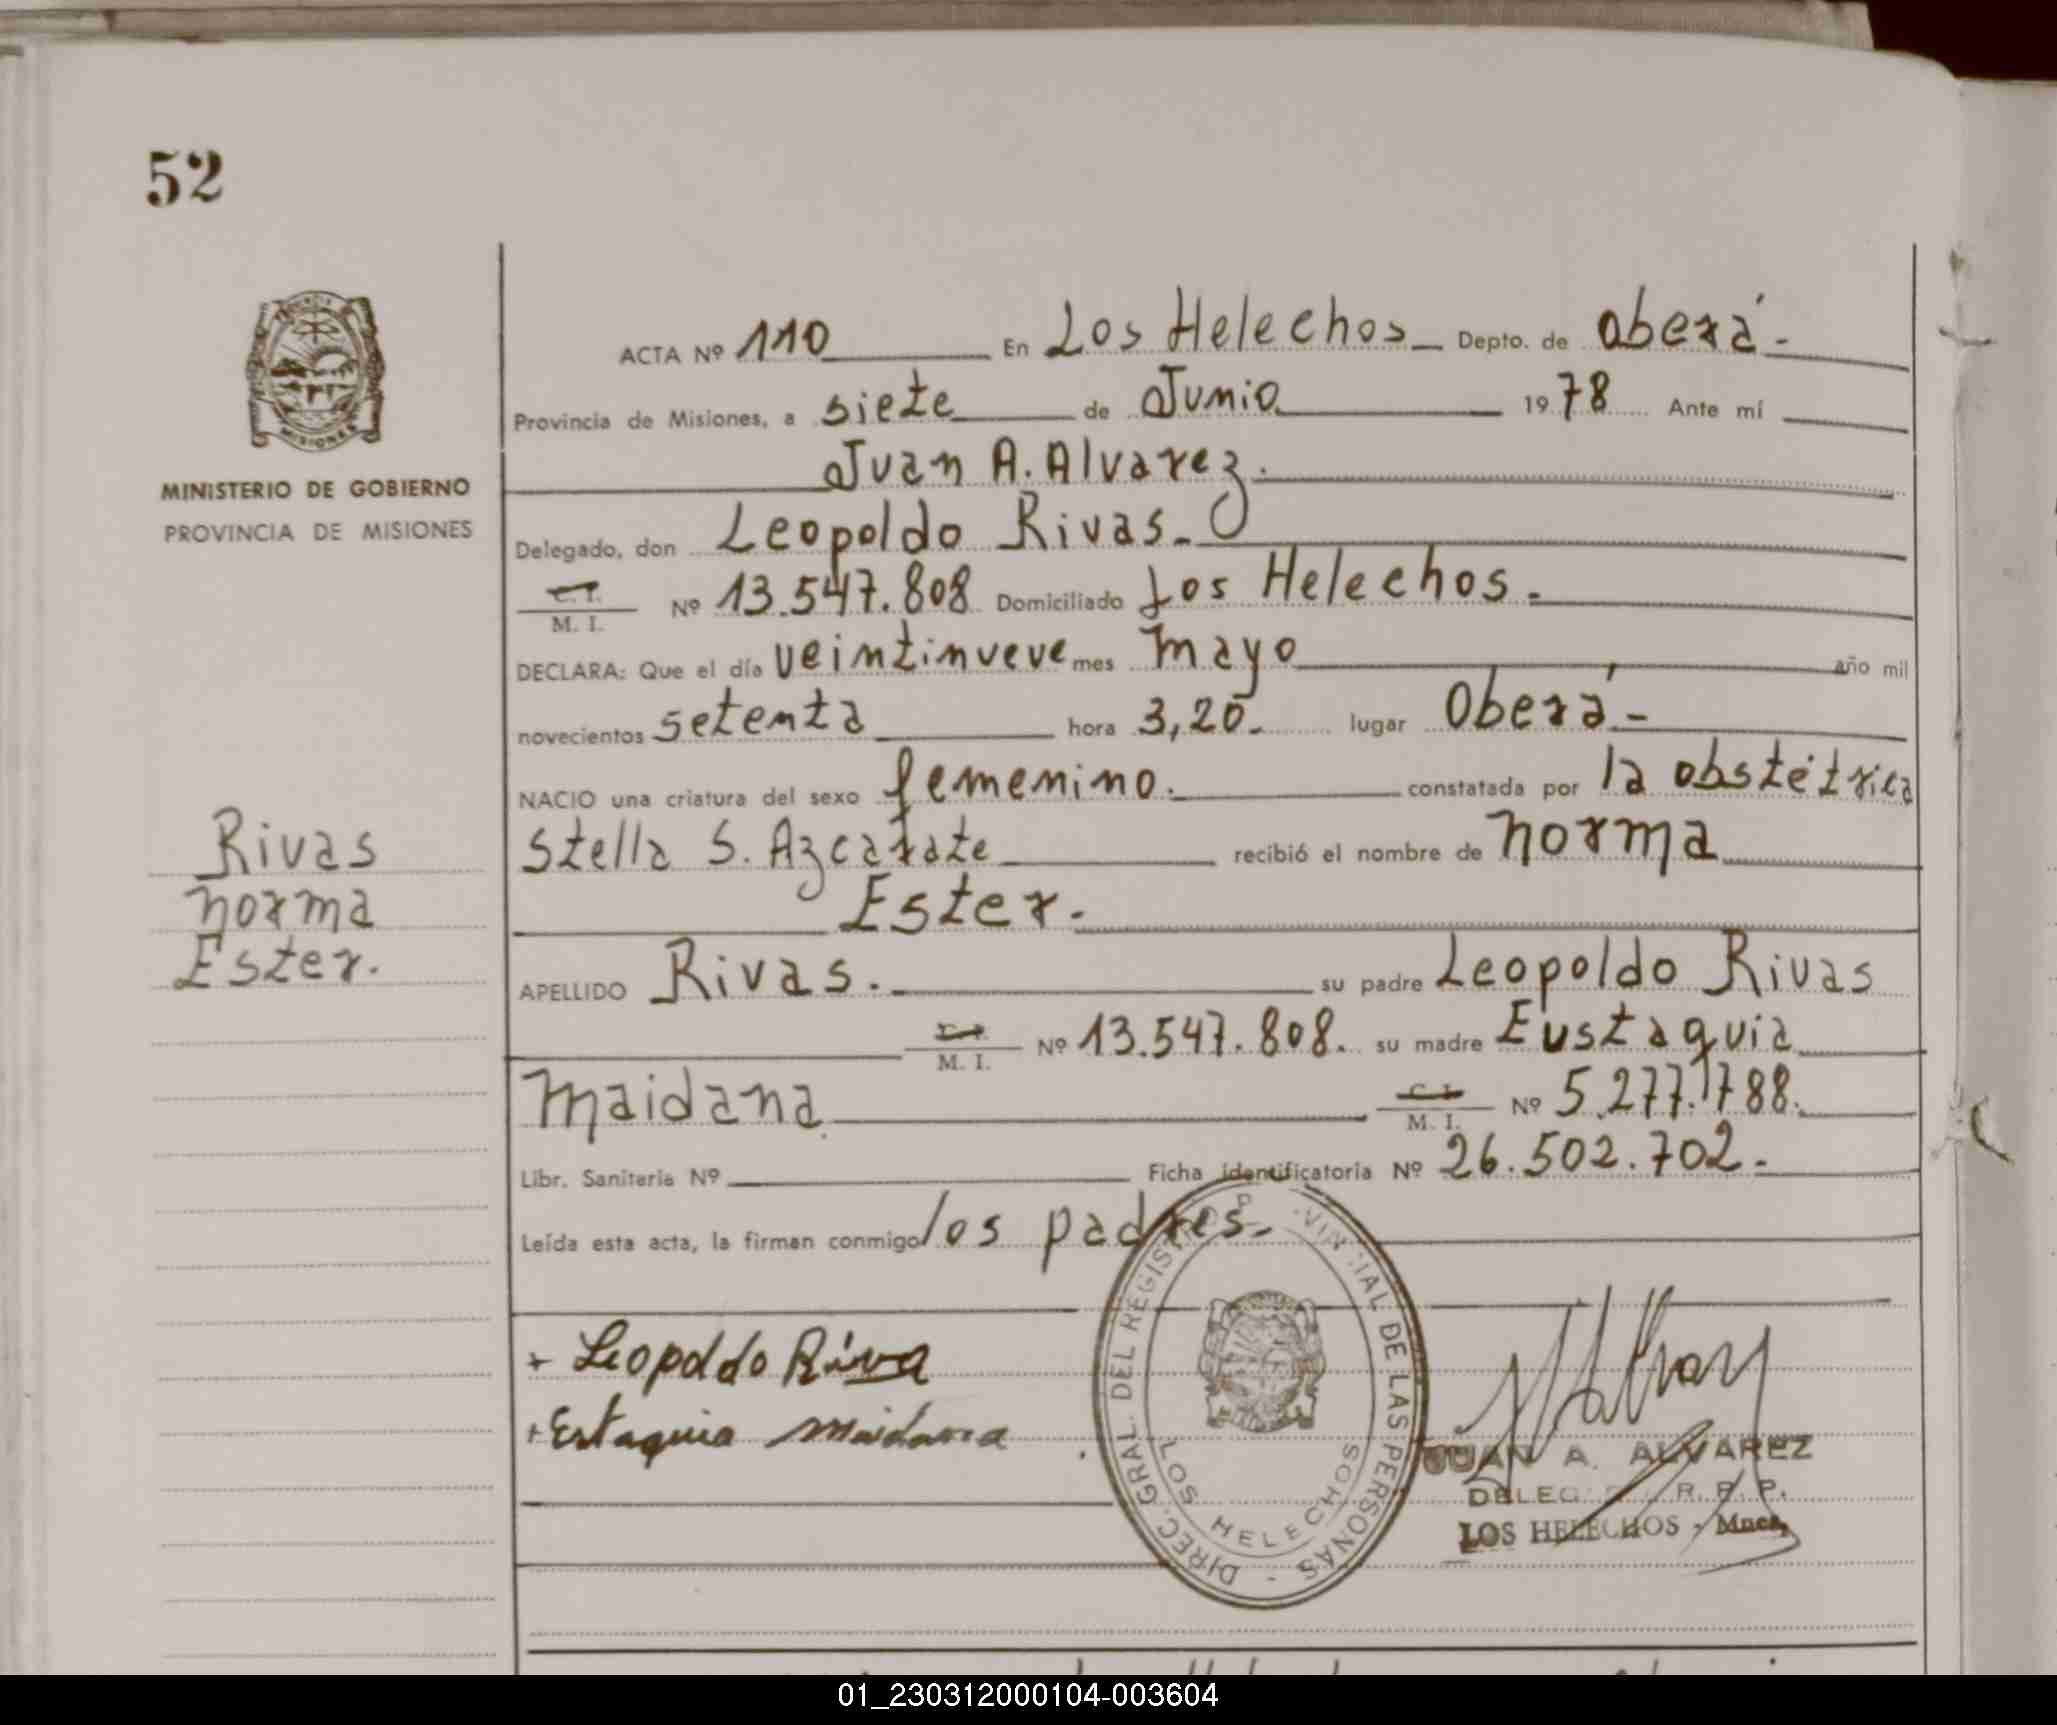 52
ACTA Nº 110 En Los Helechos Depto. de Oberá.-
Provincia de Misiones, a siete de Junio 1978 Ante mí
Juan A. Alvarez.
Delegado, don Leopoldo Rivas.-
C. I.
M. I. Nº 13.547.808 Domiciliado Los Helechos.
MINISTERIO DE GOBIERNO
PROVINCIA DE MISIONES
MISIONES
DECLARA: Que el día veintinueve mes mayo año mil
novecientos setenta hora 3,20.- lugar Oberá.-
NACIO una criatura del sexo femenino. constatada por la obstétrica
Stella S. Azcarate recibió el nombre de Norma
Ester.
Rivas
Norma
Ester.
APELLIDO Rivas. su padre Leopoldo Rivas
M. I. Nº 13.547.808. su madre Eustaquia
Maidana C. I.
M. I. Nº 5.277.788.
Libr. Sanitaria Nº Ficha identificatoria Nº 26.502.702.-
Leída esta acta, la firman conmigo los padres.
+ Leopoldo Riva
+ Estaquia Maidana
DIREC. GRAL. DEL REGISTRO DE LAS PERSONAS
HELECHOS
JUAN A. ALVAREZ
R. P. P.
LOS HELECHOS - Mnes.
01_230312000104-003604